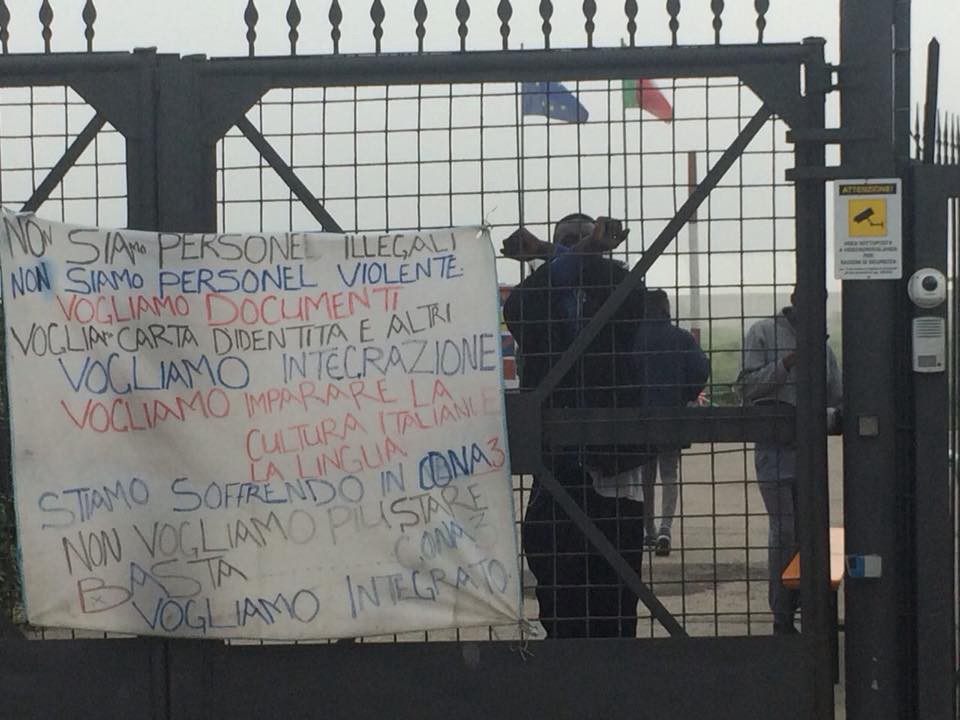 NON SIAMO PERSONEL ILLEGALI
NON SIAMO PERSONEL VIOLENTE.
VOGLIAMO DOCUMENTI
VOGLIAMO CARTA D'IDENTITA E ALTRI
VOGLIAMO INTEGRAZIONE
VOGLIAMO IMPARARE LA
CULTURA ITALIANE E
LA LINGUA
STIAMO SOFFRENDO IN CONA 3
NON VOGLIAMO PIU STARE
CONA 3
BASTA
VOGLIAMO INTEGRATO
ATTENZIONE!
AREA SOTTOPOSTA
A VIDEOSORVEGLIANZA
PER
RAGIONI DI SICUREZZA